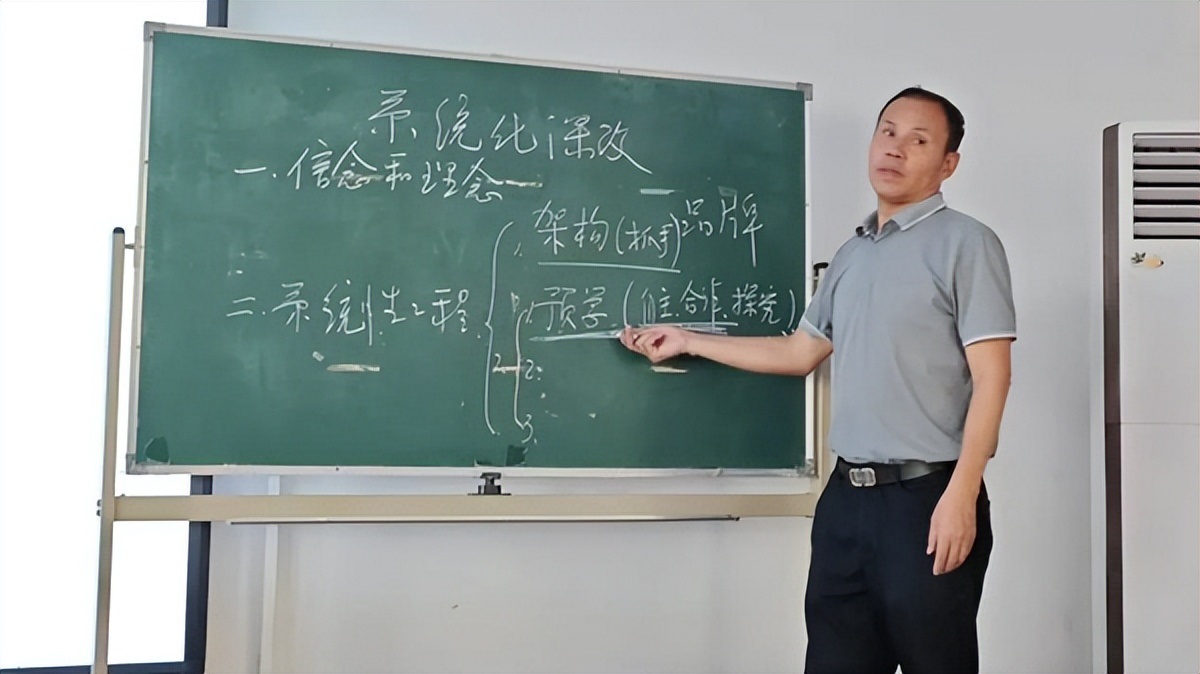 系统化深改
一.信念和理念
1.架构(抓手)品牌
二.系统性工程
1.预学(自主.合作.探究)
2.
2.
3.